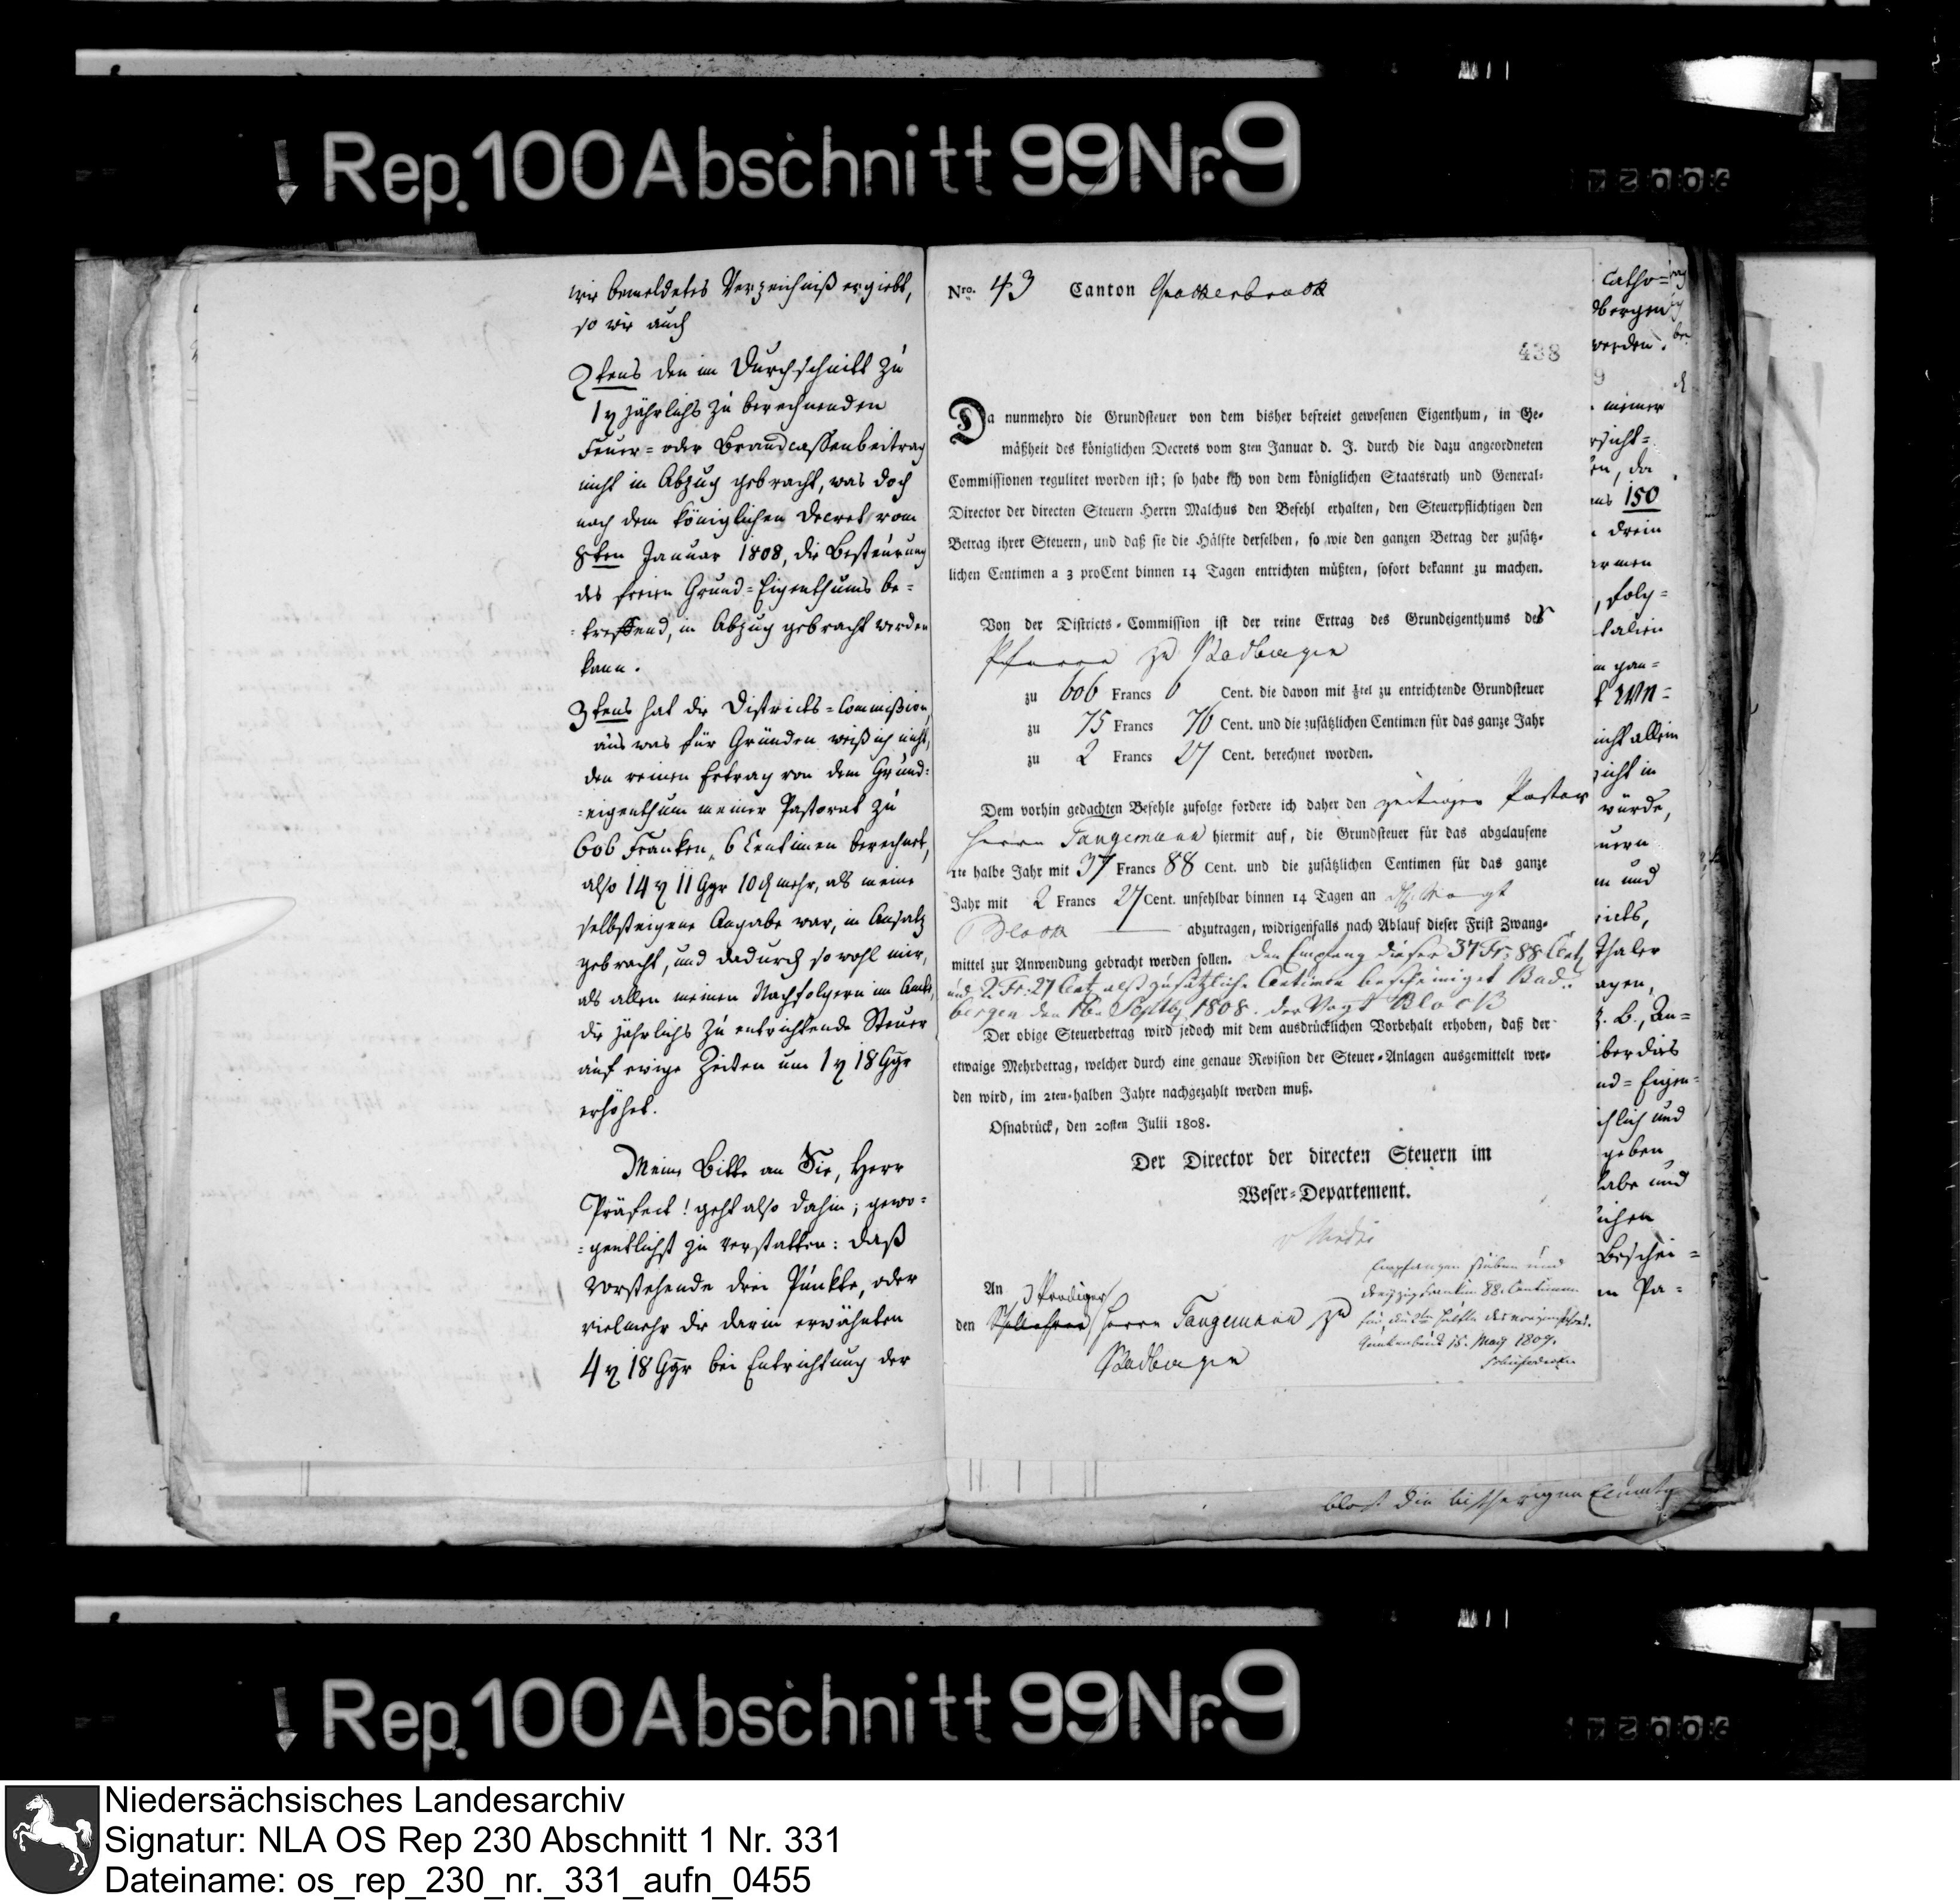 Rep. 100 Abschnitt 99 Nr. 9
wie bemeldetes Verzeichniß ergiebt,
so wie auch
2tens den im Durchschnitt zu
1 rh jährlichs zu berechnenden
Feuer= oder Brandcassenbeitrag
nicht in Abzug gebracht, was doch
nach dem königlichen Decret vom
8ten Januar 1808, die Besteurung
des freien Grund=Eigenthums be=
=treffend, in Abzug gebracht werden
kann.
3tens hat die Districts=Commißion,
aus was für Gründen weiß ich nicht,
den reinen Ertrag von dem Grund=
=eigenthum meiner Pastorat zu
606 Franken, 6 Centimen berechnet,
also 14 rh 11 Ggr 10 d mehr, als meine
selbsteigene Angabe war, in Ansatz
gebracht, und dadurch so wohl mir,
als allen meinen Nachfolgern im Amte,
die jährlichs zu entrichtende Steuer
auf ewige Zeiten um 1 rh 18 Ggr
erhöhet.
Meine Bitte an Sie, Herr
Präfect! geht also dahin; gewo=
=gentlichst zu verstatten: daß
vorstehende drei Punkte, oder
vielmehr die darin erwähnten
4 rh 18 Ggr bei Entrichtung der
Nro. 43 Canton Quackenbrück
438
Da nunmehro die Grundsteuer von dem bisher befreiet gewesenen Eigenthum, in Ge-
mäßheit des königlichen Decrets vom 8ten Januar d. J. durch die dazu angeordneten
Commissionen regulitet worden ist; so habe ich von dem königlichen Staatsrath und General-
Director der directen Steuern Herrn Malchus den Befehl erhalten, den Steuerpflichtigen den
Betrag ihrer Steuern, und daß sie die Hälfte derselben, so wie den ganzen Betrag der zusätz-
lichen Centimen a 3 proCent binnen 14 Tagen entrichten müßten, sofort bekannt zu machen.
Von der Districts-Commission ist der reine Ertrag des Grundeigenthums der
Pfarre zu Badbergen
zu 606 Francs 6 Cent. die davon mit ⅛tel zu entrichtende Grundsteuer
zu 75 Francs 76 Cent. und die zusätzlichen Centimen für das ganze Jahr
zu 2 Francs 27 Cent. berechnet worden.
Dem vorhin gedachten Befehle zufolge fordere ich daher den zeitigen Pastor
Herrn Tangemann hiermit auf, die Grundsteuer für das abgelaufene
1te halbe Jahr mit 37 Francs 88 Cent. und die zusätzlichen Centimen für das ganze
Jahr mit 2 Francs 27 Cent. unfehlbar binnen 14 Tagen an Vogt
Block abzutragen, widrigenfalls nach Ablauf dieser Frist Zwang-
mittel zur Anwendung gebracht werden sollen. Den Empfang dieser 37 Fr: 88 Cent
und 2 Fr. 27 Cent alß zusätzliche Centimen bescheiniget Bad:
bergen den 16n Septbr 1808. der Vogt Block
Der obige Steuerbetrag wird jedoch mit dem ausdrücklichen Vorbehalt erhoben, daß der
etwaige Mehrbetrag, welcher durch eine genaue Revision der Steuer-Anlagen ausgemittelt wer-
den wird, im 2ten halben Jahre nachgezahlt werden muß.
Osnabrück, den 20sten Julii 1808.
Der Director der directen Steuern im
Weser-Departement.
Empfangen sieben und
dreyzig Franken 88. Centimen
für die 2te Hälfte des vorigen Jahres.
Quakenbrück 15. May 1809.
An
Prediger
den Herrn Tangemann zu
Badbergen
Catho=
dbergen
werden.
meiner
rsicht=
en, da
150
drein
armen
, folg=
talien
gan=
nicht allein
nicht in
würde,
uern
und
ricts,
Thaler
agen,
z. B., Zu=
berdies
nd=Eigen=
chlich und
geben
abe und
ichen
Beschei=
Pa=
bloß die bißherigen
Rep. 100 Abschnitt 99 Nr. 9
Niedersächsisches Landesarchiv
Signatur: NLA OS Rep 230 Abschnitt 1 Nr. 331
Dateiname: os_rep_230_nr._331_aufn_0455